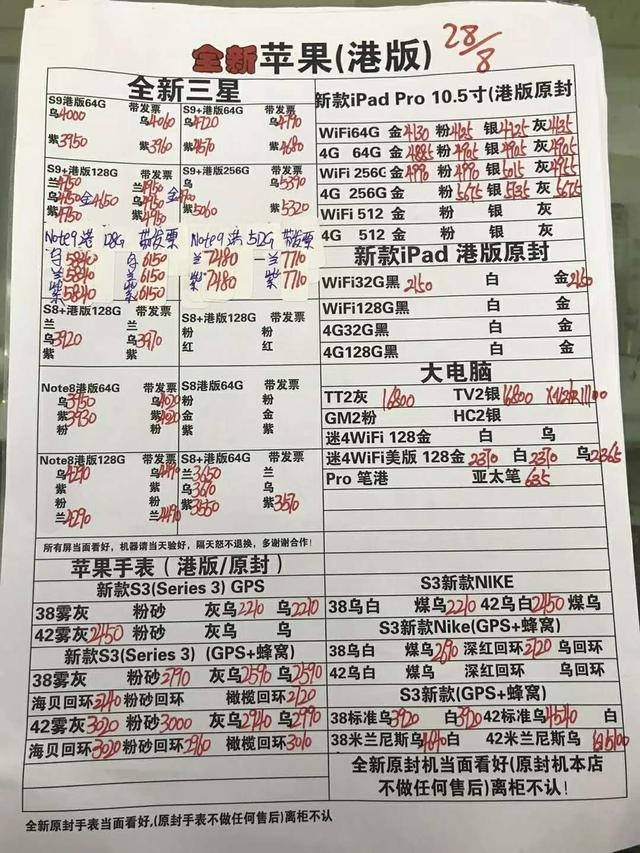 全新苹果(港版) 28/8
全新三星
S9港版64G 带发票 S9+港版64G 带发票
乌4000 乌4060 乌4720 乌4790
紫3950 紫3960 紫4570 紫4680
S9+港版128G 带发票 S9+港版256G 带发票
兰4750 兰4950 乌 乌5390
乌4650 金4650 乌4950 金4900
紫4750 紫4950 紫5060 紫5320
Note9港 128G 带发票 Note9港 512G 带发票
乌5840 乌6150 兰7480 兰7710
兰5840 兰6150 紫7480 紫7710
紫5840 紫6150
S8+港版128G 带发票 S8+港版128G 带发票
兰 兰 粉 粉
乌3920 乌3970 红 红
Note8港版64G 带发票 S8港版64G 带发票
乌3950 乌4020 乌 乌
紫3930 紫4020 金 金
粉 粉 紫 紫
Note8港版128G 带发票 S8+港版64G 带发票
乌4290 乌4490 兰3650 兰
紫 紫 乌3670 乌
粉 粉 紫3550 紫3570
兰4290 兰4490
所有屏当面看好，机器请当天验好，隔天怒不退换，多谢谢合作！
新款iPad Pro 10.5寸(港版原封
WiFi64G 金4130 粉4125 银4125 灰4135
4G 64G 金4885 粉4905 银4905 灰4905
WiFi 256G 金4990 粉4990 银5015 灰4955
4G 256G 金 粉5675 银5535 灰5675
WiFi 512 金 粉 银 灰
4G 512 金 粉 银 灰
新款iPad 港版原封
WiFi32G黑2150 白 金2150
WiFi128G黑 白 金
4G32G黑 白 金
4G128G黑 白 金
大电脑
TT2灰 16800 TV2银16800
GM2粉 HC2银
迷4WiFi 128金 白 乌
迷4WiFi美版 128金 2370 白2370 乌2365
Pro 笔港 亚太笔635
苹果手表（港版/原封）
新款S3(Series 3) GPS
38雾灰 粉砂 灰乌2210 乌2210
42雾灰2450 粉砂 灰乌 乌
新款S3(Series 3) (GPS+蜂窝)
38雾灰 粉砂2790 灰乌2590 乌2590
海贝回环2740 粉砂回环 橄榄回环2720
42雾灰3020 粉砂3000 灰乌2940 乌2990
海贝回环3020 粉砂回环2960 橄榄回环3010
S3新款NIKE
38乌白 煤乌2210 42乌白2450 煤乌
S3新款Nike(GPS+蜂窝)
38乌白 煤乌2690 深红回环2720 乌回环
42乌白 煤乌 深红回环 乌回环
S3新款(GPS+蜂窝)
38标准乌3920 白3920 42标准乌4540 白
38米兰尼斯乌4640 白 42米兰尼斯乌 白5100
全新原封机当面看好(原封机本店
不做任何售后)离柜不认！
全新原封手表当面看好,(原封手表不做任何售后)离柜不认